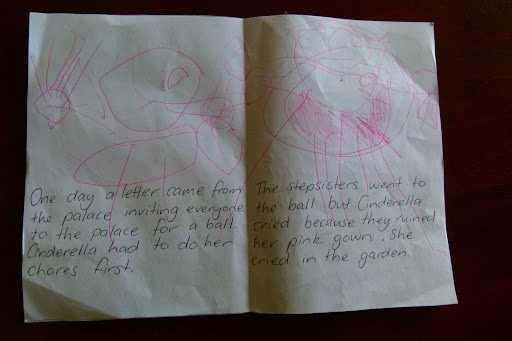 One day a letter came from
the palace inviting everyone
to the palace for a ball.
Cinderella had to do her
chores first.
The stepsisters went to
the ball but Cinderella
cried because they ruined
her pink gown. She
cried in the garden